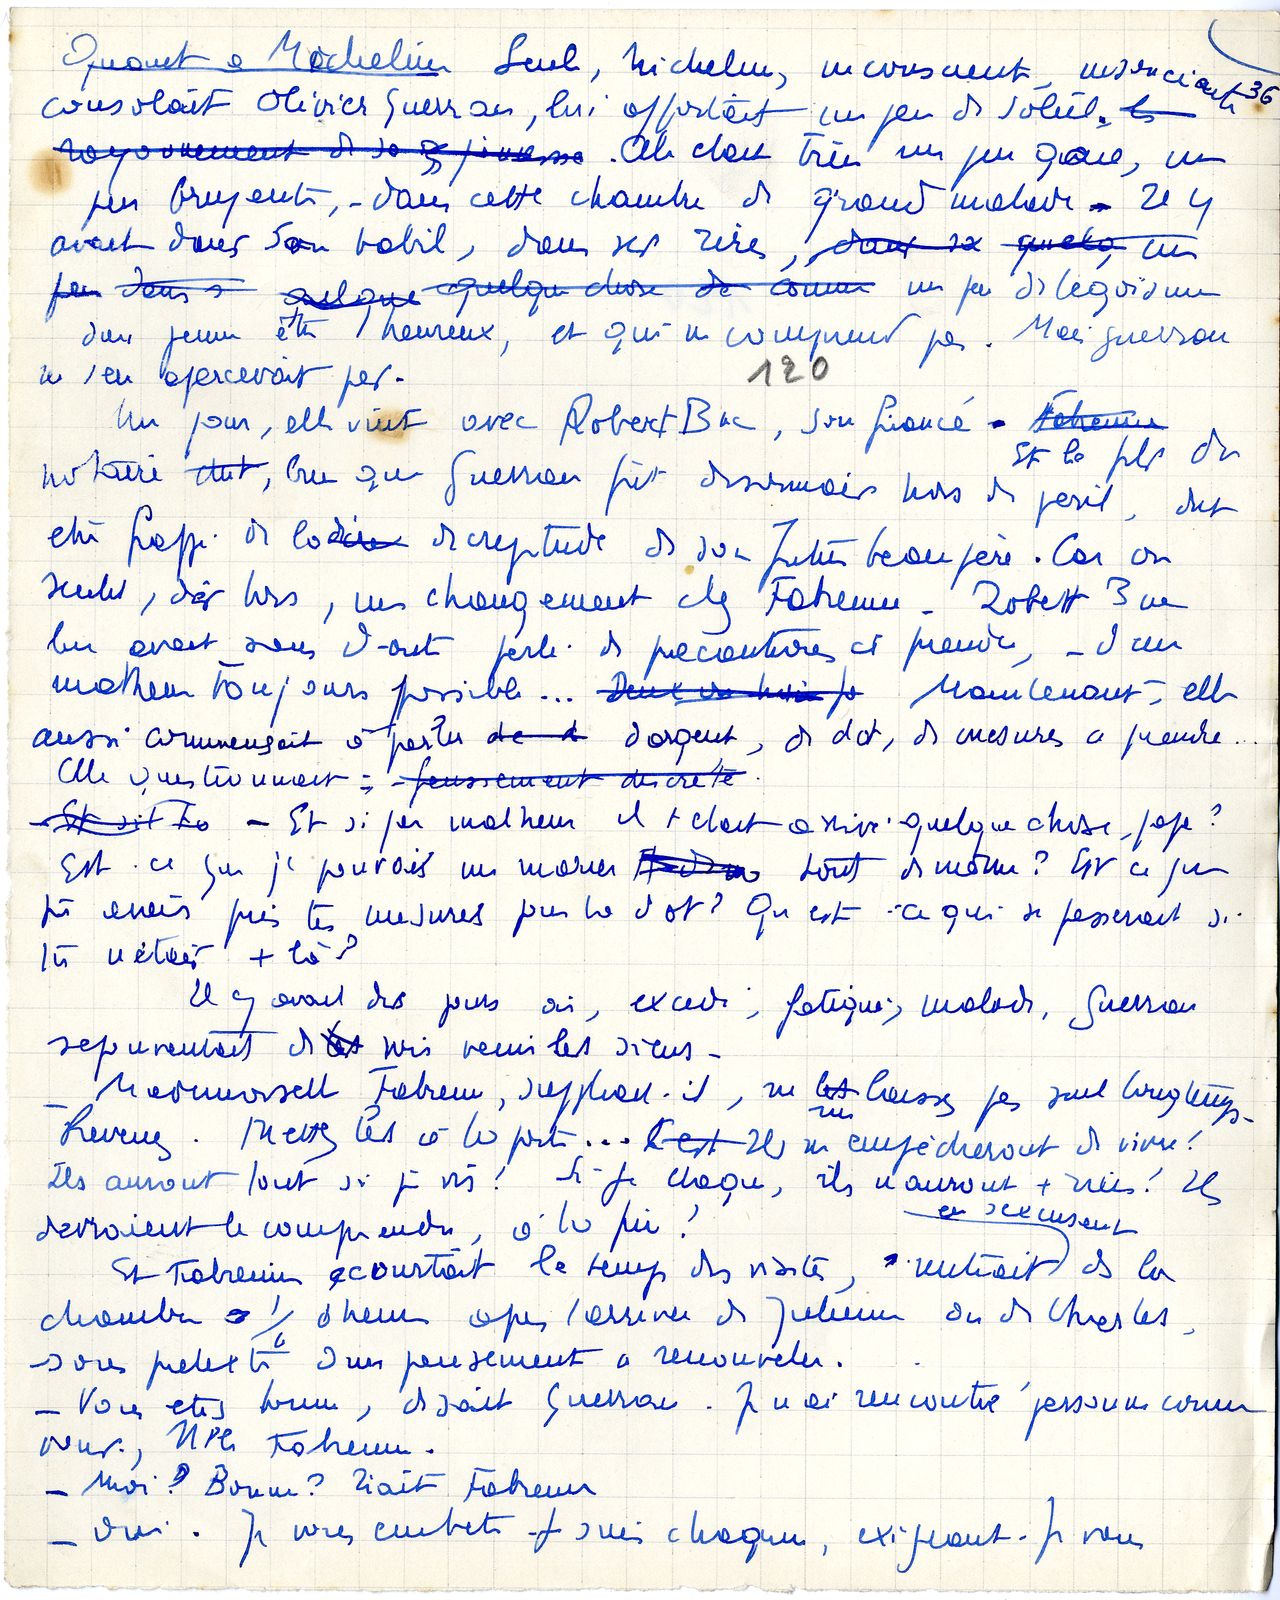 Quant a Micheline Seule, Micheline, inconsciente, insouciante 36
consolait Olivier Guerran, lui apportait un peu de soleil. le
rayonnement de sa jeunesse. Elle etait très un peu gaie, un
peu bruyante, - dans cette chambre de grand malade - Il y
avait dans son babil, dans ses rires, dans sa quelq un
peu dans s quelque quelque chose de comme un peu de l'égoisme
d'un jeune être heureux, et qui ne comprend pas. Mais Guerran
ne s'en apercevait pas.
120
Un jour, elle vint avec Robert Bac, son fiancé - Fabienne
Et le fils du
notaire dut, bien que Guerran fût desormais hors de peril, dut
etre frappé de la decreptude de son futur beau père. Car on
sentit, dès lors, un changement chez Fabienne - Robert Bac
lui avait sans doute parlé de precautions à prendre, - d'un
malheur toujours possible... Deux ou trois fo Maintenant, elle
aussi commençait à parler de d d'argent, de dot, de mesures a prendre...
Elle questionnait : - faussement discrète.
- Et si tu - Et si par malheur il t'etait arrivé quelque chose, papa?
Est-ce que je pouvais me marier tout de même? Est ce que
tu avais pris tes mesures pour la dot? Qu'est-ce qui se passerait si
tu n'étais + là?
Il y avait des jours où, excedé, fatigué, malade, Guerran
s'epouvantait de voir venir les siens -
- Mademoiselle Fabienne, suppliait-il, ne les laissez pas seul longtemps -
me
Revenez. Mettez les à la porte... C'est Ils m'empêcheront de vivre!
Ils auront tout si je vis! Si je claque, ils n'auront + rien! Ils
devraient le comprendre, à la fin!
en s'excusant
Et Fabienne ecourtait le temps des visites, rentrait de la
chambre 1/4 d'heure apres l'arrivée de Julienne ou de Charles,
sous pretexte d'un pansement a renouveler.
- Vous etes bonne, disait Guerran. Je n'ai rencontré personne comme
vous, Mlle Fabienne.
- Moi? Bonne? riait Fabienne
- Oui. Je vous embete - Je suis , exigeant. Je vous